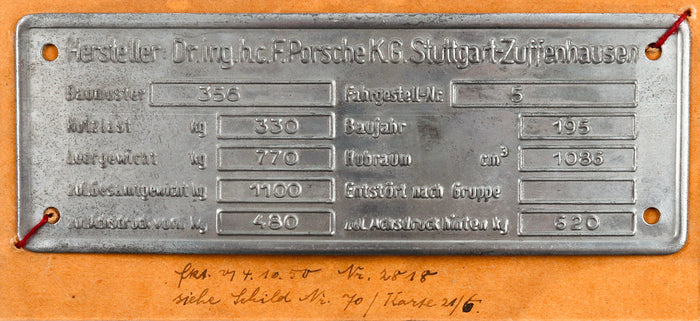 Hersteller: Dr.ing.h.c.F.Porsche K.G. Stuttgart-Zuffenhausen
Baumuster 356 Fahrgestell-Nr. 5
Nutzlast kg 330 Baujahr 195
Leergewicht kg 770 Hubraum cm³ 1086
zul.Gesamtgewicht kg 1100 Entstört nach Gruppe
zul.Achsdruck vorn kg 480 zul.Achsdruck hinten kg 620
v. 4.10.50 Nr. 2818
siehe Schild Nr. 70 / Karte 21/6.